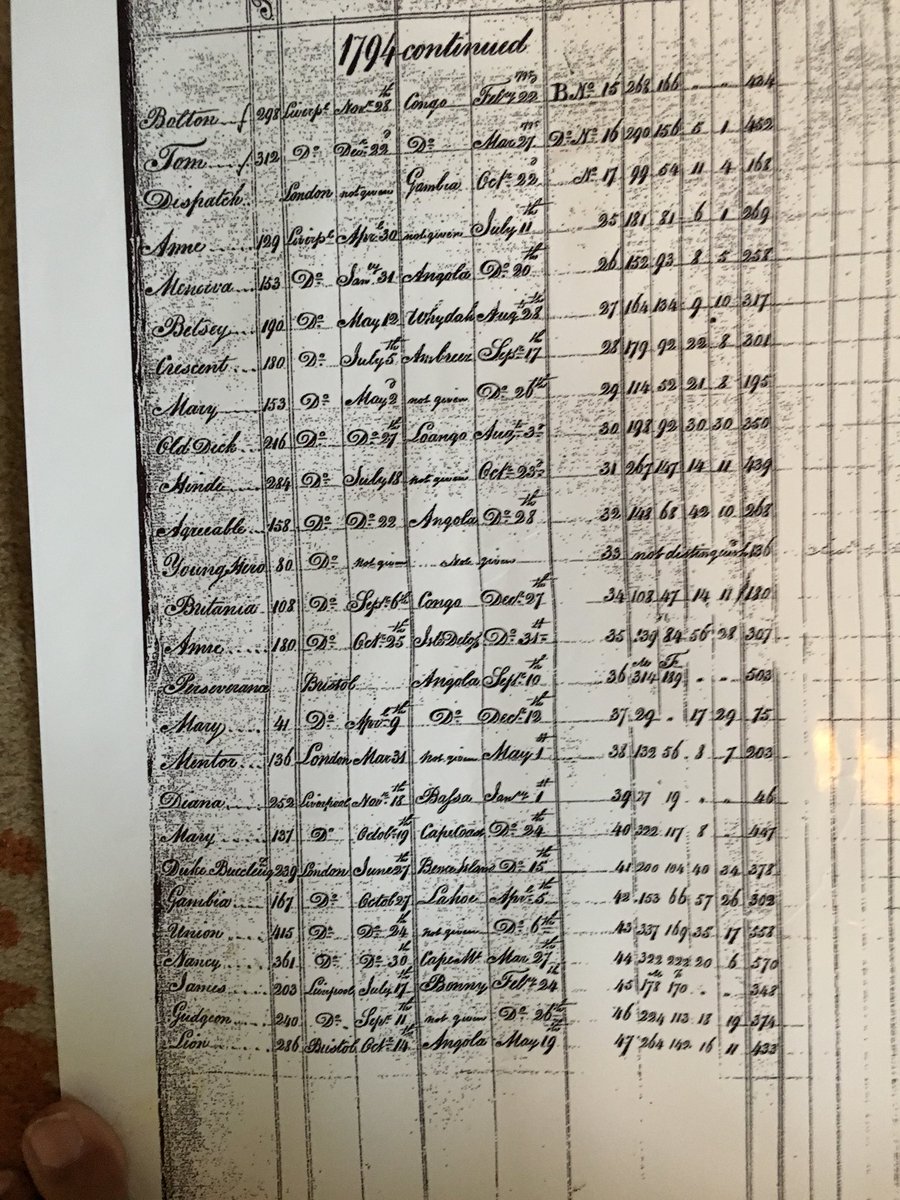 1794 continued
Bolton 298 Liverpl Novr 28th Congo Feby 22 1795 B. No 15 268 166 " " 434
Tom 312 Do Decr 22d Do Mar 27 1795 Do No 16 290 156 5 1 452
Dispatch London not given Gambia Octr 22d No 17 99 54 11 4 168
Anne 129 Liverpl Aprl 30 not given July 11th 25 181 81 6 1 269
Menciva 153 Do Jany 31 Angola Do 20th 26 152 93 8 5 258
Betsey 190 Do May 12 Whydah Augt 28th 27 164 134 9 10 317
Crescent 180 Do July 5th Ambreez Septr 17th 28 179 92 22 8 301
Mary 153 Do May 2d not given Do 26th 29 114 52 21 8 195
Old Dick 216 Do Do 27th Loango Augt 3d 30 198 92 30 30 350
Hinde 284 Do July 18 not given Octr 23d 31 267 147 14 11 439
Agreeable 158 Do Do 22 Angola Do 28th 32 148 68 42 10 268
Young Hero 80 Do not given Not given 33 not distinguish 136
Britania 108 Do Septr 6th Congo Decr 27th 34 108 47 14 11 180
Anne 180 Do Octr 25th Isls Delos Do 31st 35 139 84 56 28 307
Perseverance Bristol Angola Septr 10th 36 M 314 F 189 " " 503
Mary 41 Do Aprl 9 Do Decr 12th 37 29 " 17 29 75
Mentor 136 London Mar 31 not given May 1st 38 132 56 8 7 203
Diana 252 Liverpool Novr 18th Bassa Jany 1st 39 27 19 " " 46
Mary 137 Do Octobr 19th Cape Coast Do 24 40 322 117 8 " 447
Duke Buccleugh 239 London June 27th Bence Island Do 15th 41 200 104 40 34 378
Gambia 167 Do Octob 27 Lahoe Aprl 5th 42 153 66 57 26 302
Union 415 Do Do 24th not given Do 6th 43 337 169 35 17 558
Nancy 361 Do Do 30th Cape Mt Mar 27th 44 322 222 20 6 570
James 203 Liverpool July 17th Bonny Feby 24th 45 M 178 F 170 " " 348
Gudgeon 240 Do Septr 11th not given Do 26th 46 224 113 18 19 374
Lion 286 Bristol Octr 14th Angola May 19th 47 264 142 16 11 433